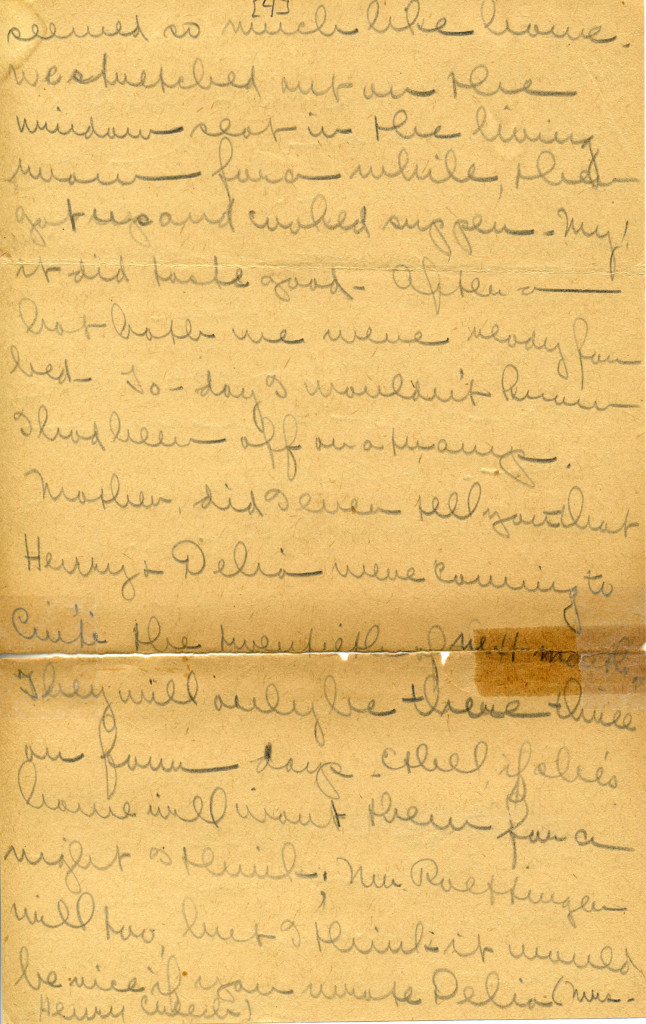 [4]
seemed so much like home.
We stretched out on the
window seat in the living
room for a while, then
got up and cooked supper - My!
it did taste good - After a
hot bath we were ready for
bed. To-day I wouldn't know
I had been off on a tramp.
Mother, did I ever tell you that
Henry & Delia were coming to
Cin'ti the twentieth of next month.
They will only be there three
or four days - Ethel if she's
home will want them for a
night I think; Mrs. Roettinger
will too, but I think it would
be nice if you wrote Delia (Mrs.
Henry